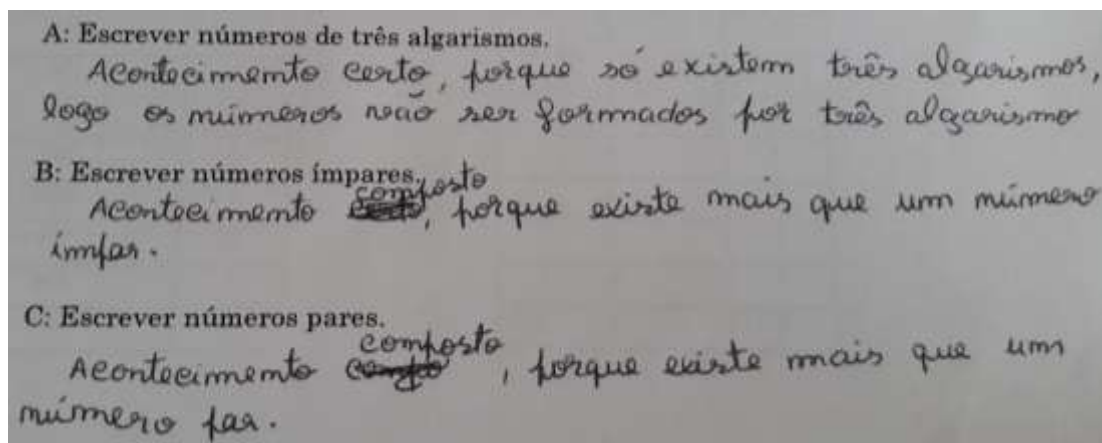 A: Escrever números de três algarismos.
Acontecimento certo, porque só existem três algarismos,
logo os números vão ser formados por três algarismo
B: Escrever números ímpares.
Acontecimento composto, porque existe mais que um número
ímpar.
C: Escrever números pares.
Acontecimento composto, porque existe mais que um
número par.